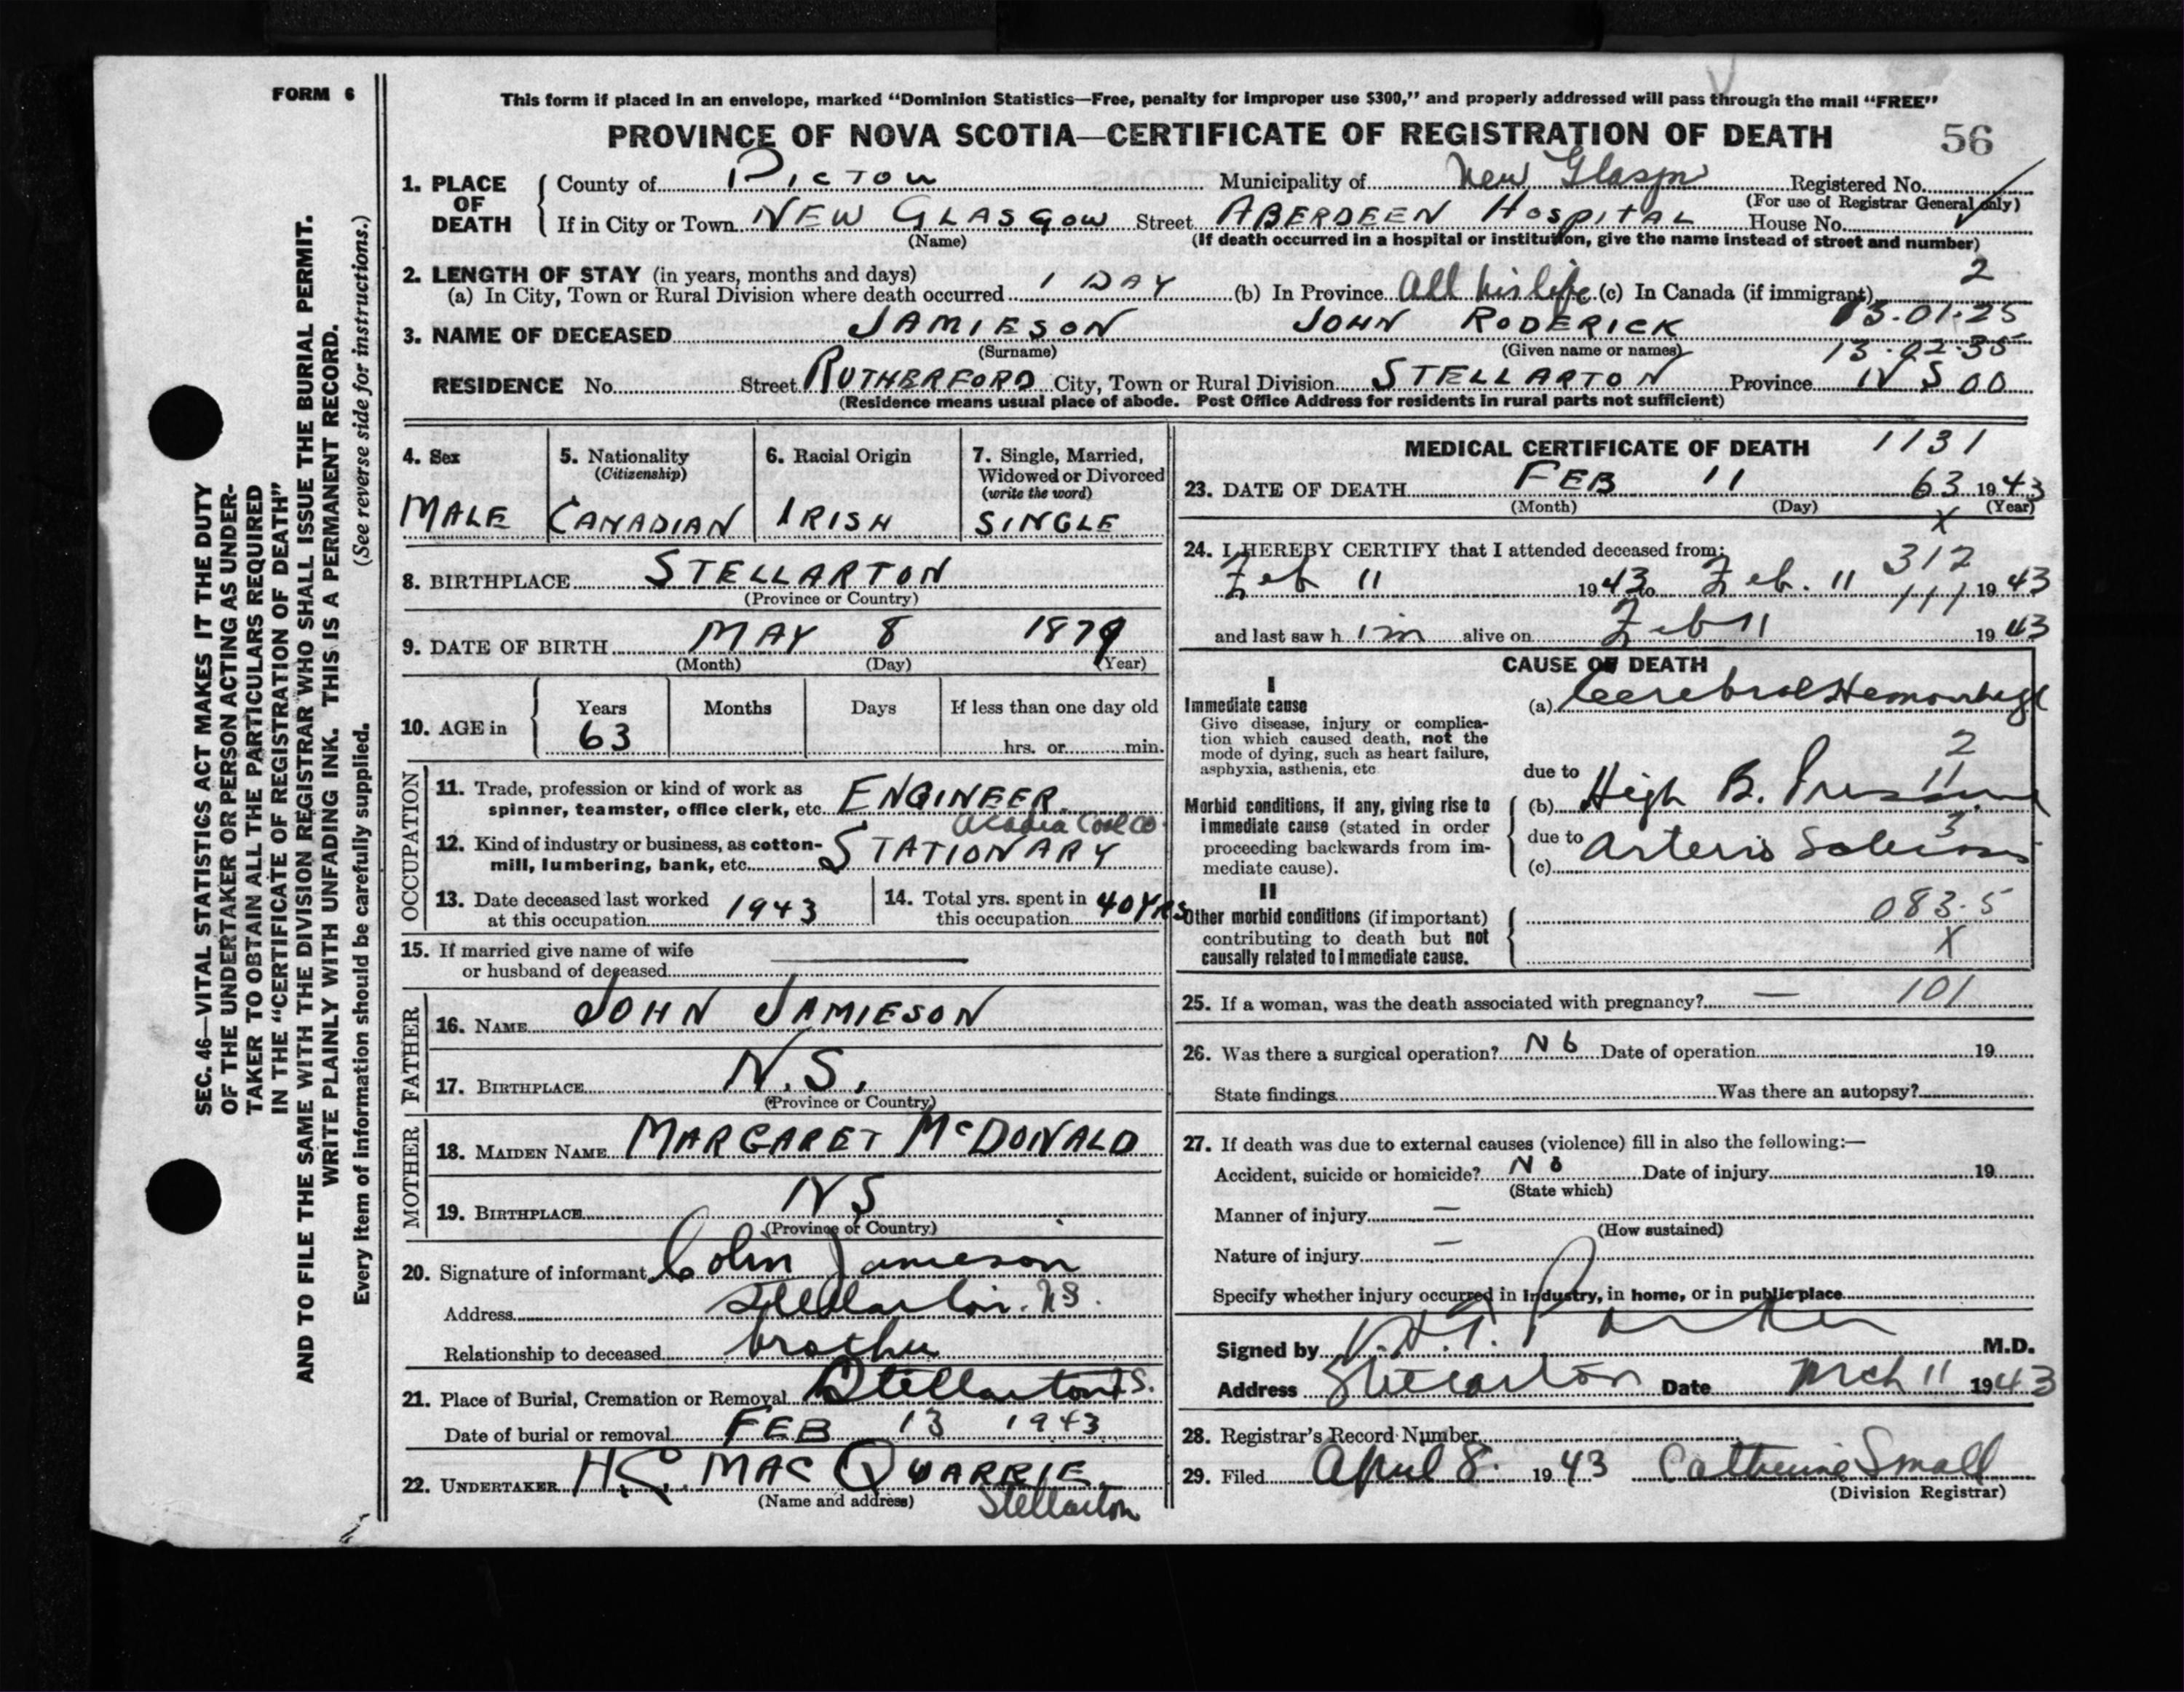 FORM 6
This form if placed in an envelope, marked "Dominion Statistics—Free, penalty for improper use $300," and properly addressed will pass through the mail "FREE"
PROVINCE OF NOVA SCOTIA—CERTIFICATE OF REGISTRATION OF DEATH 56
SEC. 46—VITAL STATISTICS ACT MAKES IT THE DUTY
OF THE UNDERTAKER OR PERSON ACTING AS UNDER-
TAKER TO OBTAIN ALL THE PARTICULARS REQUIRED
IN THE "CERTIFICATE OF REGISTRATION OF DEATH"
AND TO FILE THE SAME WITH THE DIVISION REGISTRAR WHO SHALL ISSUE THE BURIAL PERMIT.
WRITE PLAINLY WITH UNFADING INK. THIS IS A PERMANENT RECORD.
Every item of information should be carefully supplied. (See reverse side for instructions.)
1. PLACE OF DEATH County of PICTOU Municipality of New Glasgow Registered No.
(For use of Registrar General only)
If in City or Town NEW GLASGOW Street ABERDEEN HOSPITAL House No.
(Name) (If death occurred in a hospital or institution, give the name instead of street and number)
2. LENGTH OF STAY (in years, months and days) 2
(a) In City, Town or Rural Division where death occurred 1 DAY (b) In Province All his life (c) In Canada (if immigrant)
3. NAME OF DECEASED JAMIESON JOHN RODERICK 13.01.25
(Surname) (Given name or names) 13.02.35
RESIDENCE No. Street RUTHERFORD City, Town or Rural Division STELLARTON Province NS 00
(Residence means usual place of abode. Post Office Address for residents in rural parts not sufficient)
4. Sex
MALE
5. Nationality
(Citizenship)
CANADIAN
6. Racial Origin
IRISH
7. Single, Married,
Widowed or Divorced
(write the word)
SINGLE
8. BIRTHPLACE STELLARTON
(Province or Country)
9. DATE OF BIRTH MAY 8 1879
(Month) (Day) (Year)
10. AGE in Years Months Days If less than one day old
63 hrs. or min.
OCCUPATION
11. Trade, profession or kind of work as
spinner, teamster, office clerk, etc. ENGINEER
Acadia Coal Co
12. Kind of industry or business, as cotton-
mill, lumbering, bank, etc. STATIONARY
13. Date deceased last worked
at this occupation 1943
14. Total yrs. spent in
this occupation 40 YRS
15. If married give name of wife
or husband of deceased
FATHER
16. NAME JOHN JAMIESON
17. BIRTHPLACE N.S.
(Province or Country)
MOTHER
18. MAIDEN NAME MARGARET McDONALD
19. BIRTHPLACE NS
(Province or Country)
20. Signature of informant Colin Jamieson
Address Stellarton. NS.
Relationship to deceased brother
21. Place of Burial, Cremation or Removal Stellarton
Date of burial or removal FEB 13 1943
22. UNDERTAKER H.C. MACQUARRIE
(Name and address) Stellarton
MEDICAL CERTIFICATE OF DEATH 1131
23. DATE OF DEATH FEB 11 63 1943
(Month) (Day) (Year)
X
24. I HEREBY CERTIFY that I attended deceased from: 312
Feb 11 1943 to Feb. 11 1943
111
and last saw h im alive on Feb 11 1943
CAUSE OF DEATH
I
Immediate cause
Give disease, injury or complica-
tion which caused death, not the
mode of dying, such as heart failure,
asphyxia, asthenia, etc
(a) Cerebral Hemorrhage
2
11
due to
Morbid conditions, if any, giving rise to
immediate cause (stated in order
proceeding backwards from im-
mediate cause).
(b) High B. Pressure
3
due to
(c) Arterio Sclerosis
II
Other morbid conditions (if important)
contributing to death but not
causally related to immediate cause.
083.5
X
25. If a woman, was the death associated with pregnancy? — 101
26. Was there a surgical operation? No Date of operation 19
State findings Was there an autopsy?
27. If death was due to external causes (violence) fill in also the following:—
Accident, suicide or homicide? No Date of injury 19
(State which)
Manner of injury —
(How sustained)
Nature of injury —
Specify whether injury occurred in industry, in home, or in public place
Signed by Parker M.D.
Address Stellarton Date Mrch 11 1943
28. Registrar's Record Number
29. Filed April 8. 1943 Catherine Small
(Division Registrar)